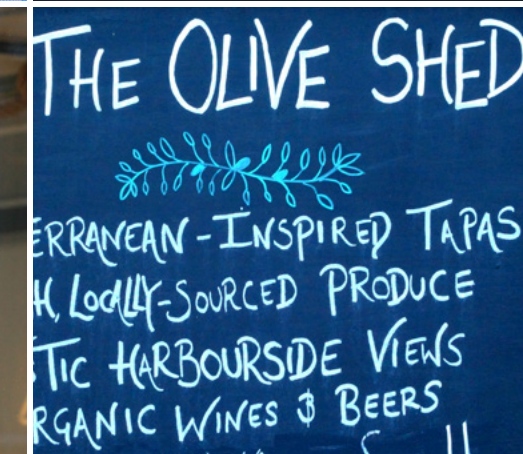 THE OLIVE SHED
ERRANEAN-INSPIRED TAPAS
H, LOCALLY-SOURCED PRODUCE
TIC HARBOURSIDE VIEWS
RGANIC WINES & BEERS